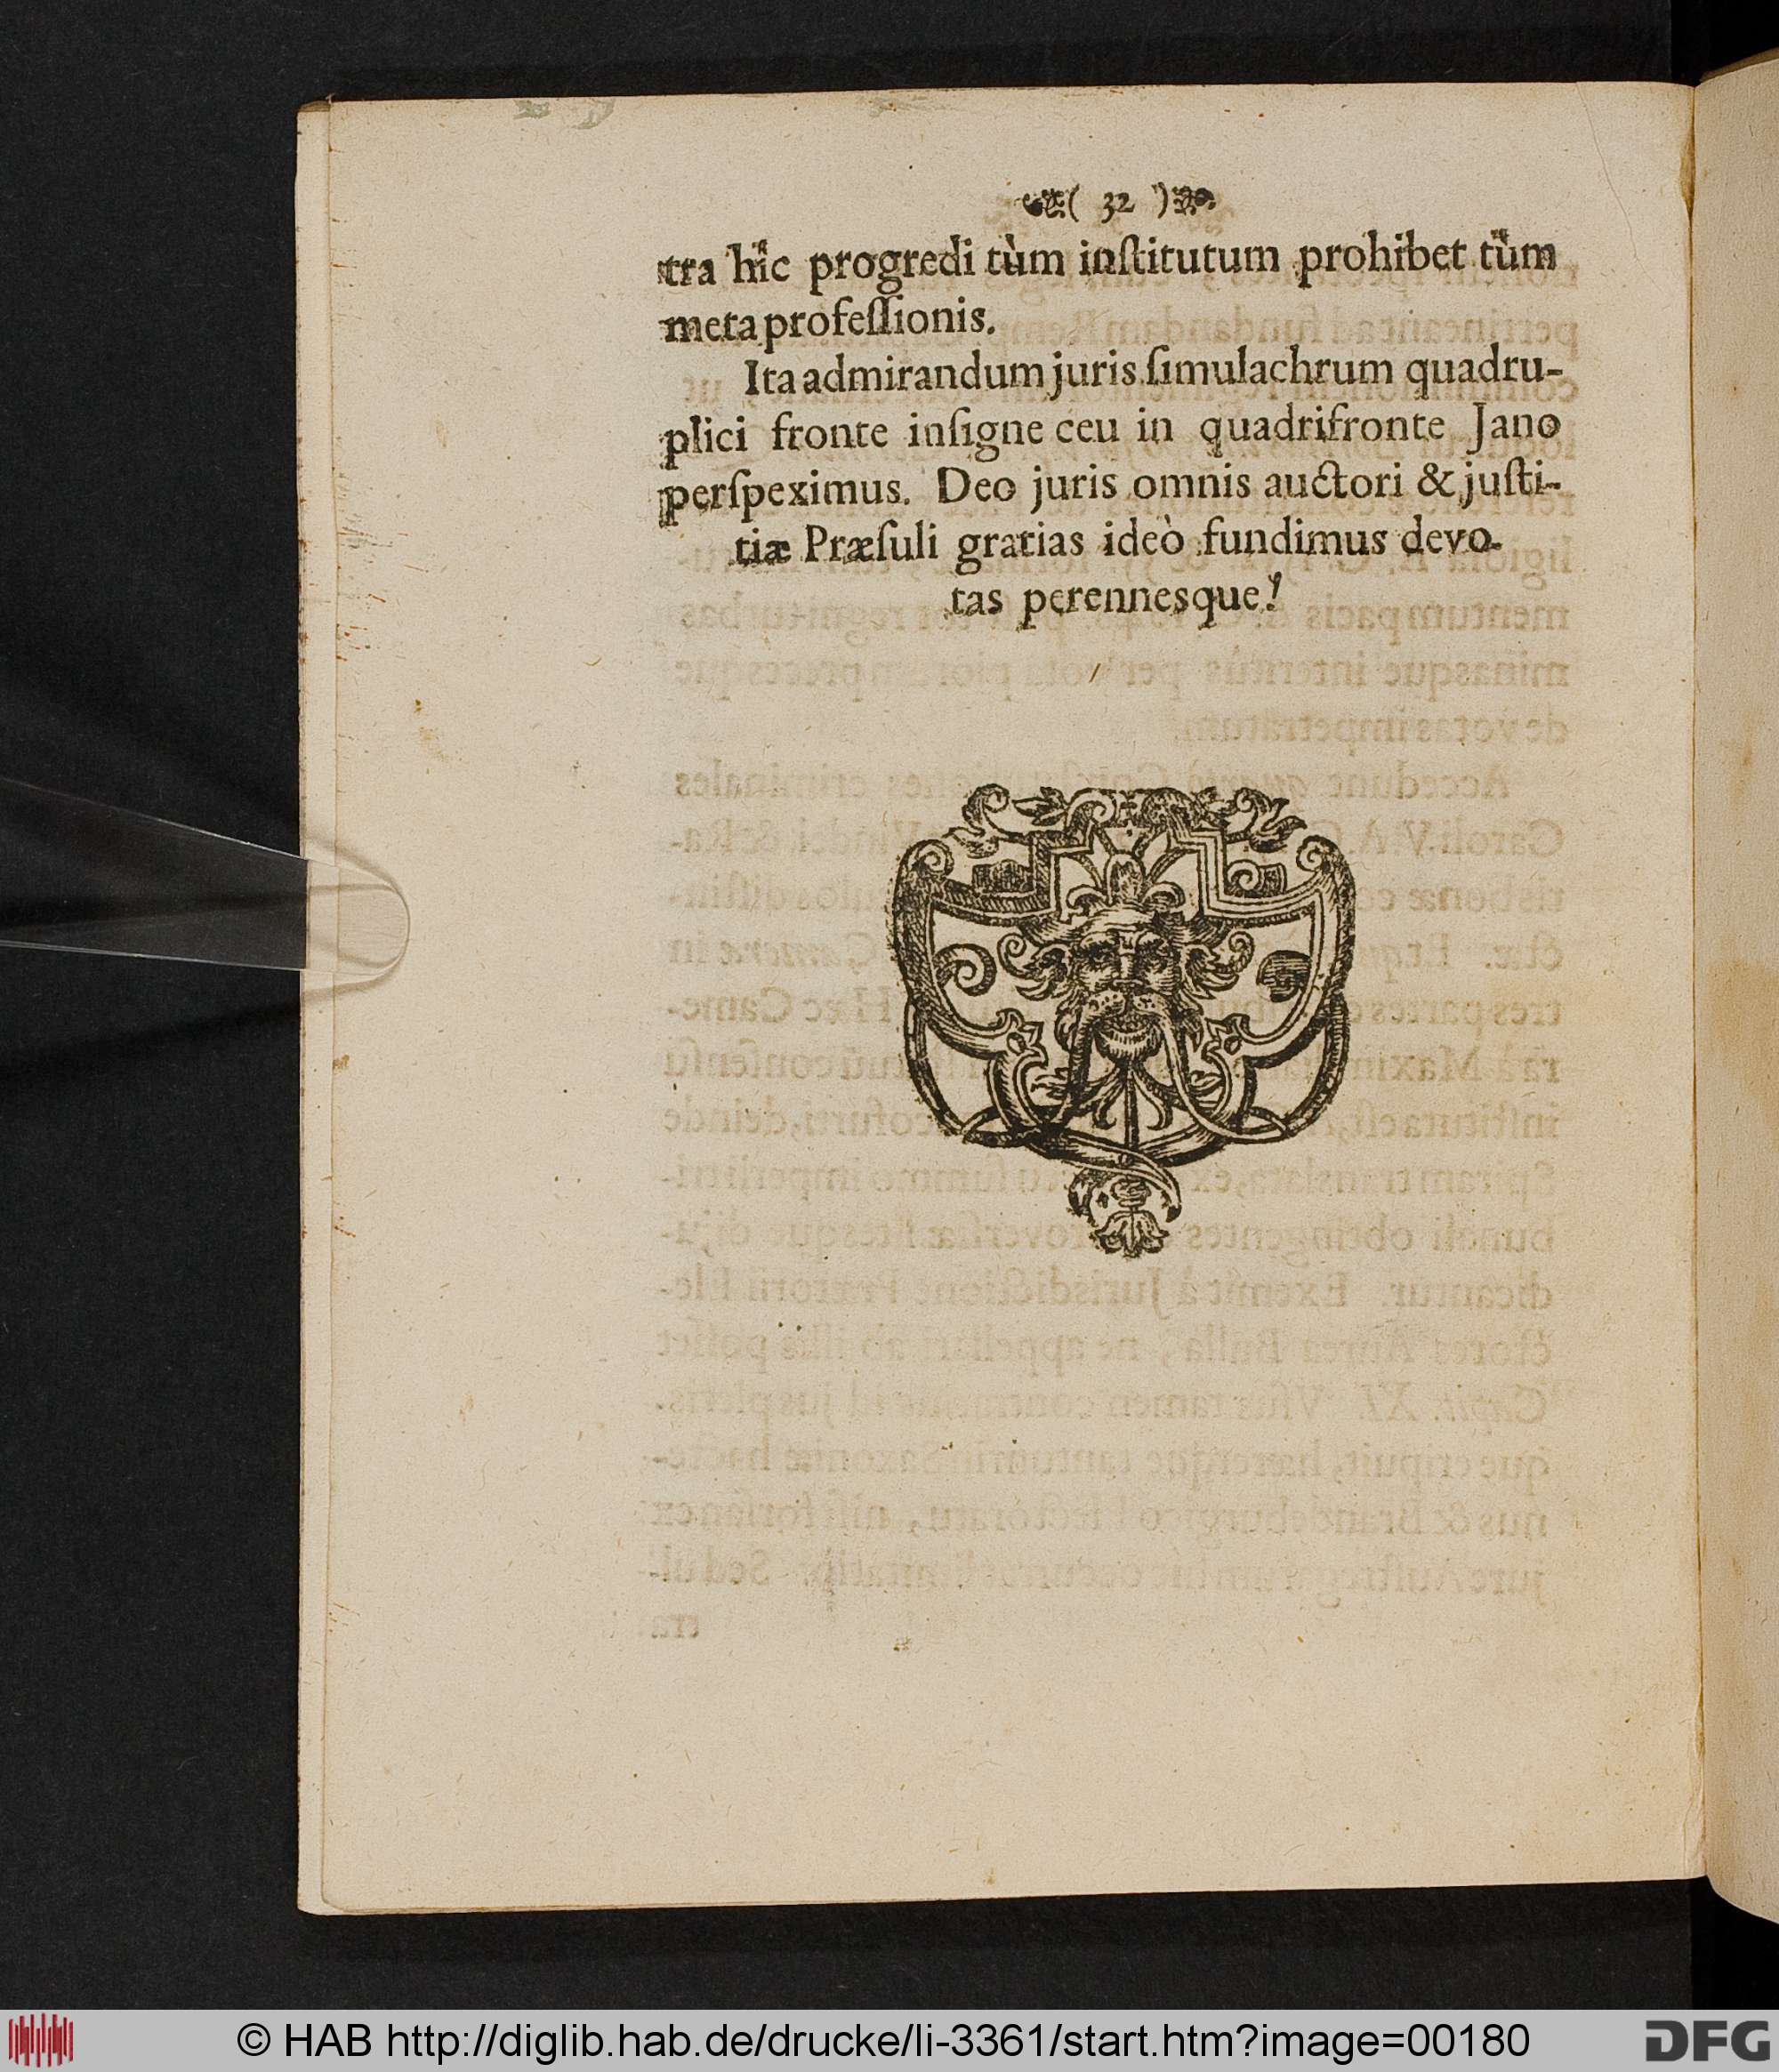 ( 32 )
tra hîc progredi tùm inſtitutum prohibet tùm
meta profeſſionis.
Ita admirandum juris ſimulachrum quadru-
plici fronte inſigne ceu in quadrifronte Jano
perſpeximus. Deo juris omnis auctori & juſti-
tiæ Præſuli gratias ideò fundimus devo-
tas perennesque!
© HAB http://diglib.hab.de/drucke/li-3361/start.htm?image=00180
DFG